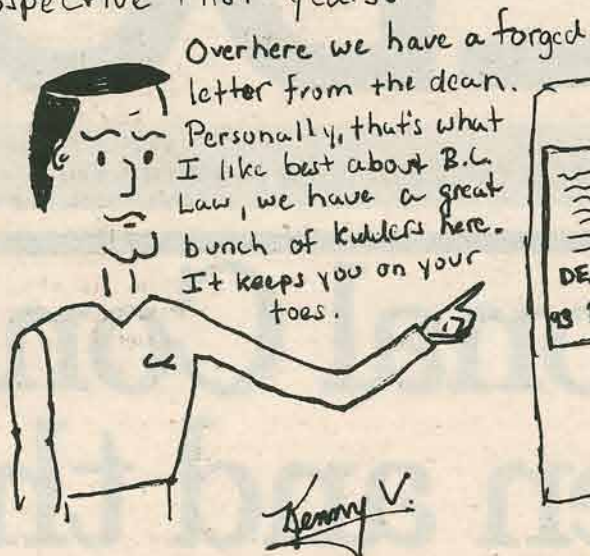 spective first years.
Over here we have a forged
letter from the dean.
Personally, that's what
I like best about B.C.
Law, we have a great
bunch of kidders here.
It keeps you on your
toes.
DE
93
Kenny V.